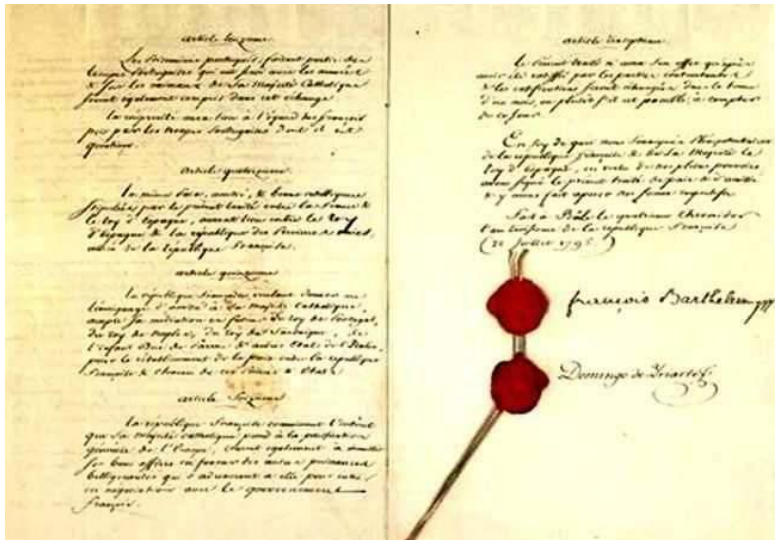 article treizieme
Les Prisonniers portugais, faisant partie des
troupes Portugaises qui ont servi avec les armées &
sur les vaisseaux de Sa Majesté Catholique
seront également compris dans cet échange.
La réciprocité aura lieu à l'égard des français
pris par les troupes Portugaises dont il est
question.
article quatorzieme
La même Paix, amitié, & bonne intelligence
stipulées par le présent traité entre la france &
le Roy d'espagne, auront lieu entre le Roy
d'Espagne & la république des Provinces unies,
alliée de la république française.
article quinzieme
La république française, voulant donner un
témoignage d'amitié à Sa Majesté Catholique,
accepte sa médiation en faveur du roy de Portugal,
du roy de Naples, du roy de Sardaigne, de
l'infant Duc de Parme & autres Etats de l'Italie,
pour le rétablissement de la paix entre la république
française & chacun de ces Princes & Etats
article Seizieme
La république française connoissant l'intérêt
que Sa Majesté catholique prend à la pacification
générale de l'Europe, consent également à
ses bons offices en faveur des autres puissances
belligérantes qui s'adresseroient à elle pour entrer
en négociation avec le gouvernement
français.
article dixseptieme
Le présent traité n'aura son effet qu'après
avoir été ratifié par les parties contractantes &
les ratifications seront échangées dans le terme
d'un mois, ou plutôt s'il est possible, à compter
de ce jour.
En foy de quoi nous soussignés Plénipotentiaires
de la république française & de Sa Majesté le
Roy d'espagne, en vertu de nos pleins pouvoirs,
avons signé le présent traité de paix & d'amitié
& y avons fait apposer nos sceaux respectifs.
fait à Bâle le quatrieme Thermidor
l'an troisieme de la république française
(22 Juillet 1795)
françois Barthélemy
Domingo de Yriarte